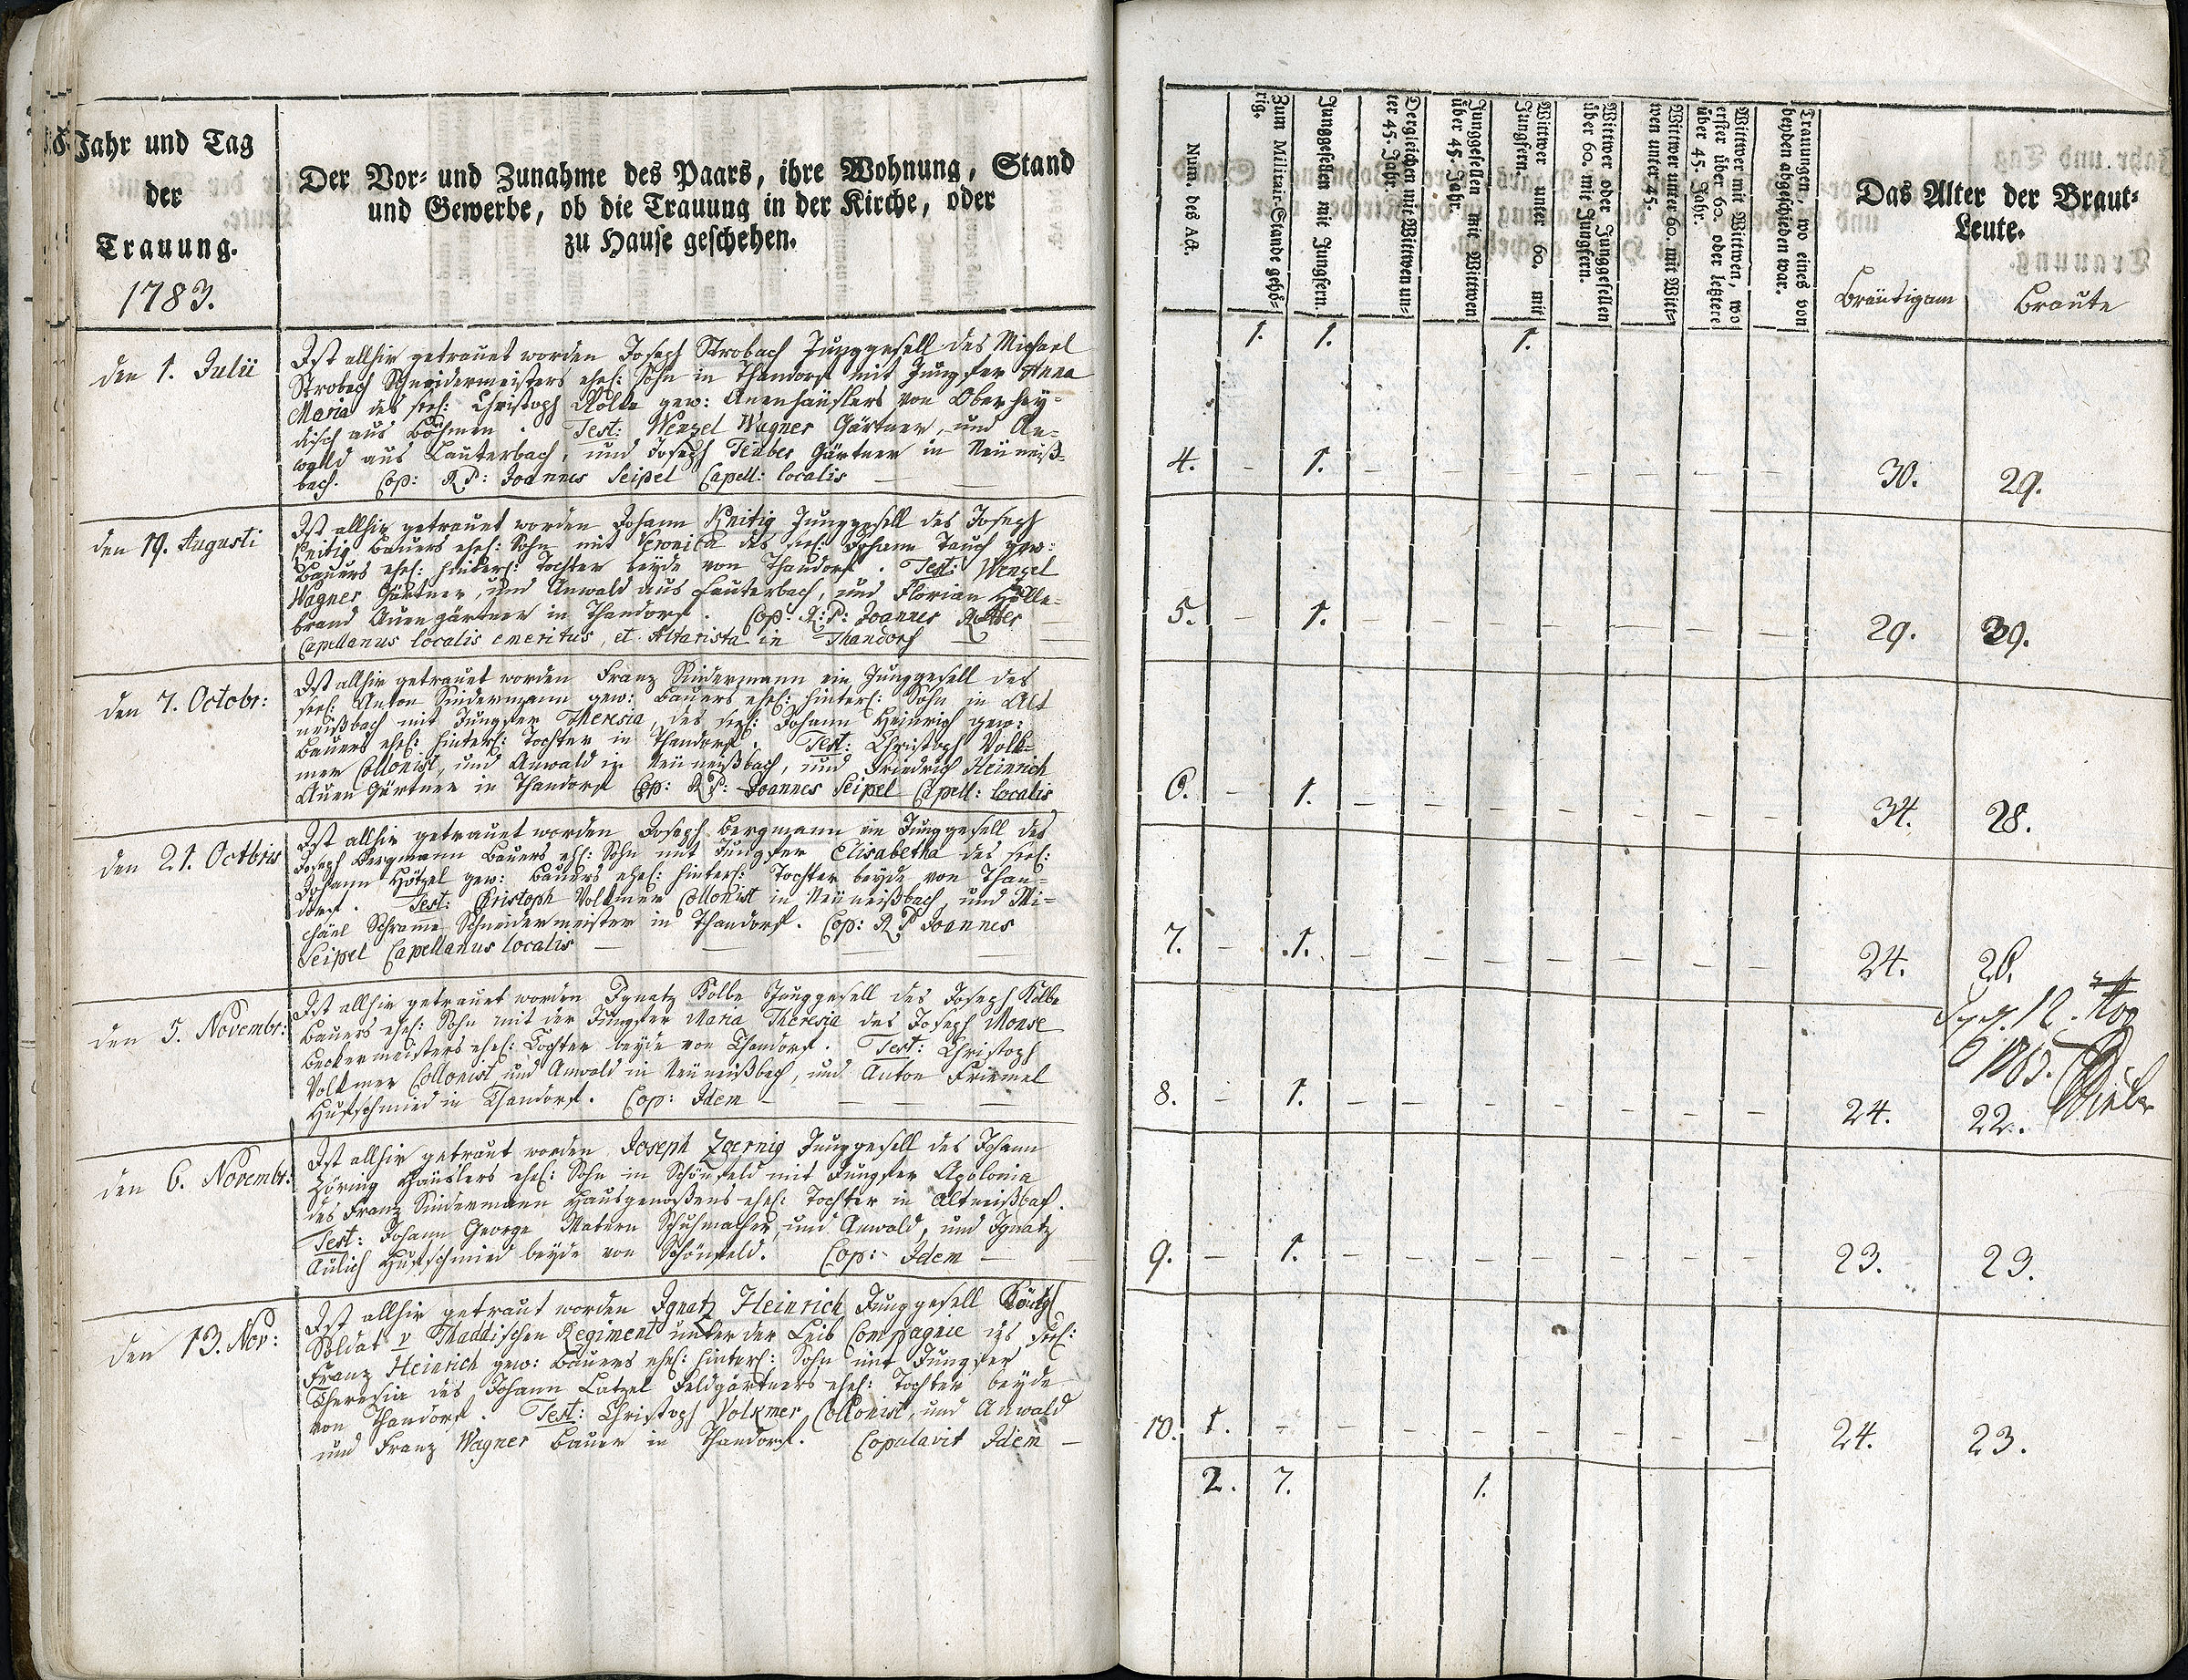 Jahr und Tag
der
Trauung.
1783.
Der Vor- und Zunahme des Paars, ihre Wohnung, Stand
und Gewerbe, ob die Trauung in der Kirche, oder
zu Hause geschehen.
den 1. Julii
Ist allhir getrauet worden Joseph Strobach Junggesell des Michael
Strobach Schneidermeisters ehel: Sohn in Thandorf mit Jungfer Anna
Maria des seel: Christoph gew: Auenhäuslers von Oberhey-
disch aus Böhmen. Test: Wenzel Wagner Gärtner, und An-
wald aus Lauterbach, und Joseph Teuber Gärtner in Neu neiß-
bach. Cop: R P: Joannes Seipel Capell: localis
den 19. Augusti
Ist allhir getrauet worden Johann Kneitig Junggesell des Joseph
Kneitig Bauers ehel: Sohn mit Veronica des seel: Johann Tauch gew:
Bauers ehel: hinterl: Tochter beyde von Thandorf. Test: Wenzel
Wagner Gärtner, und Anwald aus Lauterbach, und Florian Hille-
brand Auengärtner in Thandorf. Cop: R: P: Joannes
Capellanus localis emeritus, et Altarista in Thandorf
den 7. Octobr:
Ist allhir getrauet worden Franz Sindermann ein Junggesell des
seel: Anton Sindermann gew: Bauers ehel: hinterl: Sohn in Alt
neißbach mit Jungfer Theresia, des seel: Johann Heinrich gew:
Bauers ehel: hinterl: Tochter in Thandorf. Test: Christoph Volk-
mer Collonist, und Anwald in Neu neißbach, und Friedrich Heinrich
Auen Gärtner in Thandorf Cop: R P: Joannes Seipel Capell: localis
den 21. Octbris
Ist allhir getrauet worden Joseph Bergmann ein Junggesell des
Joseph Bergmann Bauers ehl: Sohn mit Jungfer Elisabetha des seel:
Johann Hötzel gew: Bauers ehel: hinterl: Tochter beyde von Than-
dorf. Test: Christoph Volkmer Collonist in Neu neißbach, und Mi-
chäel Schramm Schneidermeister in Thandorf. Cop: R P Joannes
Seipel Capellanus localis
den 5. Novembr:
Ist allhir getrauet worden Ignatz Kolbe Junggesell des Joseph Kolbe
Bauers ehel: Sohn mit der Jungfer Maria Theresia des Joseph Monse
Beckermeisters ehel: Tochter beyde von Thandorf. Test: Christoph
Volkmer Collonist und Anwald in Neu neißbach, und Anton Friemel
Hufschmied in Thandorf. Cop: Idem
den 6. Novembr:
Ist allhir getraut worden Joseph Zoernig Junggesell des Johann
Zöring Häuslers ehel: Sohn in Schönfeld mit Jungfer Apolonia
des Franz Sindermann Hausgenoßens ehel: Tochter in Altneißbach.
Test: Johann George Matern Schuhmacher, und Anwald, und Ignatz
Aulich Hufschmied beyde von Schönfeld. Cop: Idem
den 13. Nov:
Ist allhir getraut worden Ignatz Heinrich Junggesell Königl
Soldat v Thaddischen Regiment unter der Leib Compagnie des seel:
Franz Heinrich gew: Bauers ehel: hinterl: Sohn mit Jungfer
Theresia des Johann Latzel Feldgärtners ehel: Tochter beyde
von Thandorf. Test: Christoph Volkmer Collonist, und Anwald
und Franz Wagner Bauer in Thandorf. Copulavit Idem
Num. des Act.
Zum Militair-Stande gehö-
rig.
Junggesellen mit Jungfern.
Dergleichen mit Wittwen un-
ter 45. Jahr.
Junggesellen mit Wittwen
über 45. Jahr.
Wittwer unter 60. mit
Jungfern.
Wittwer oder Junggesellen
über 60. mit Jungfern.
Wittwer unter 60. mit Witt-
wen unter 45.
Wittwer mit Wittwen, wo
erster über 60. oder letztere
über 45. Jahr.
Trauungen, wo eines von
beyden abgeschieden war.
Das Alter der Braut-
Leute.
Bräutigam
Braute
1. 1. 1.
4. - 1. - - - - - - - 30. 29.
5. - 1. - - - - - - - 29. 39.
6. - 1. - - - - - - - 34. 28.
7. - 1. - - - - - - - 24. 26.
8. - 1. - - - - - - - 24. 22.
9. - 1. - - - - - - - 23. 23.
10. 1. - - - - - - - - 24. 23.
2. 7. 1.